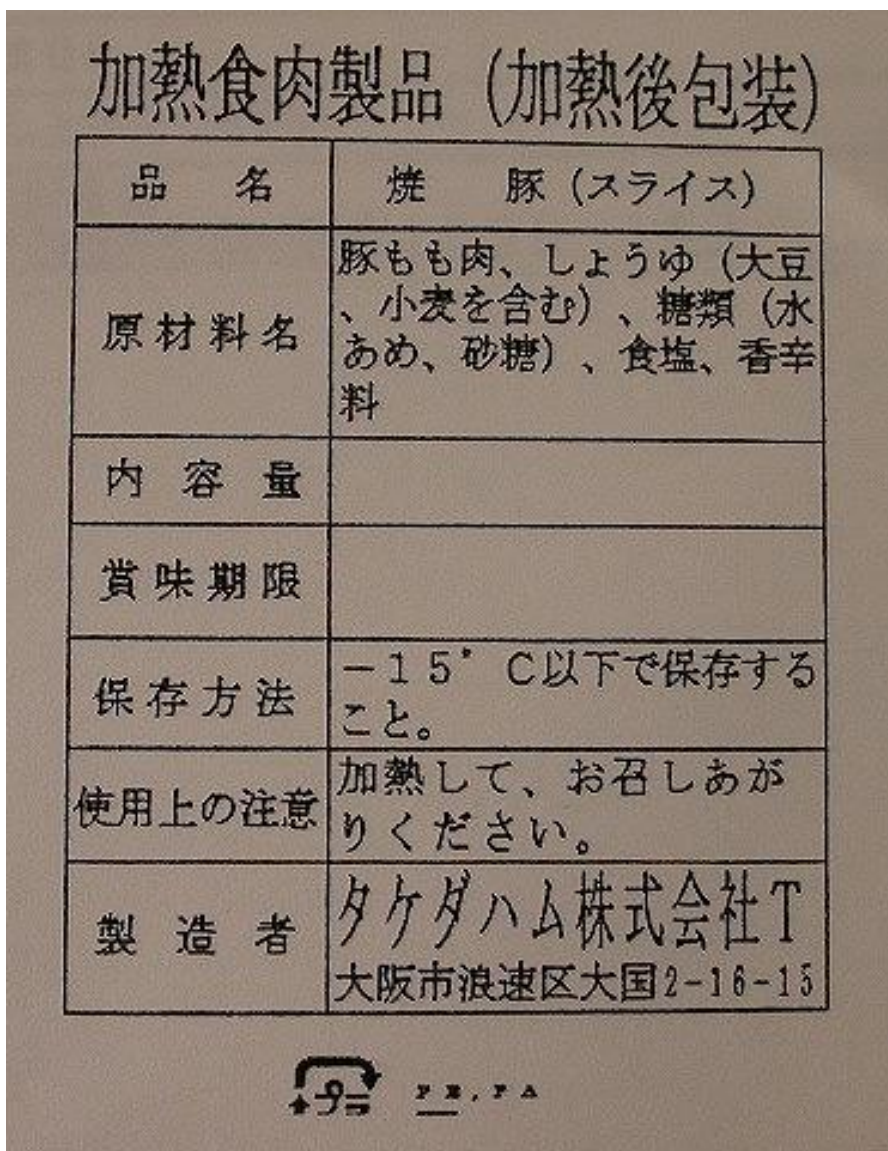 加熱食肉製品（加熱後包装）
品名
焼　豚（スライス）
原材料名
豚もも肉、しょうゆ（大豆
、小麦を含む）、糖類（水
あめ、砂糖）、食塩、香辛
料
内容量
賞味期限
保存方法
－１５°Ｃ以下で保存する
こと。
使用上の注意
加熱して、お召しあが
りください。
製造者
タケダハム株式会社T
大阪市浪速区大国2-16-15
プラ PE,PA